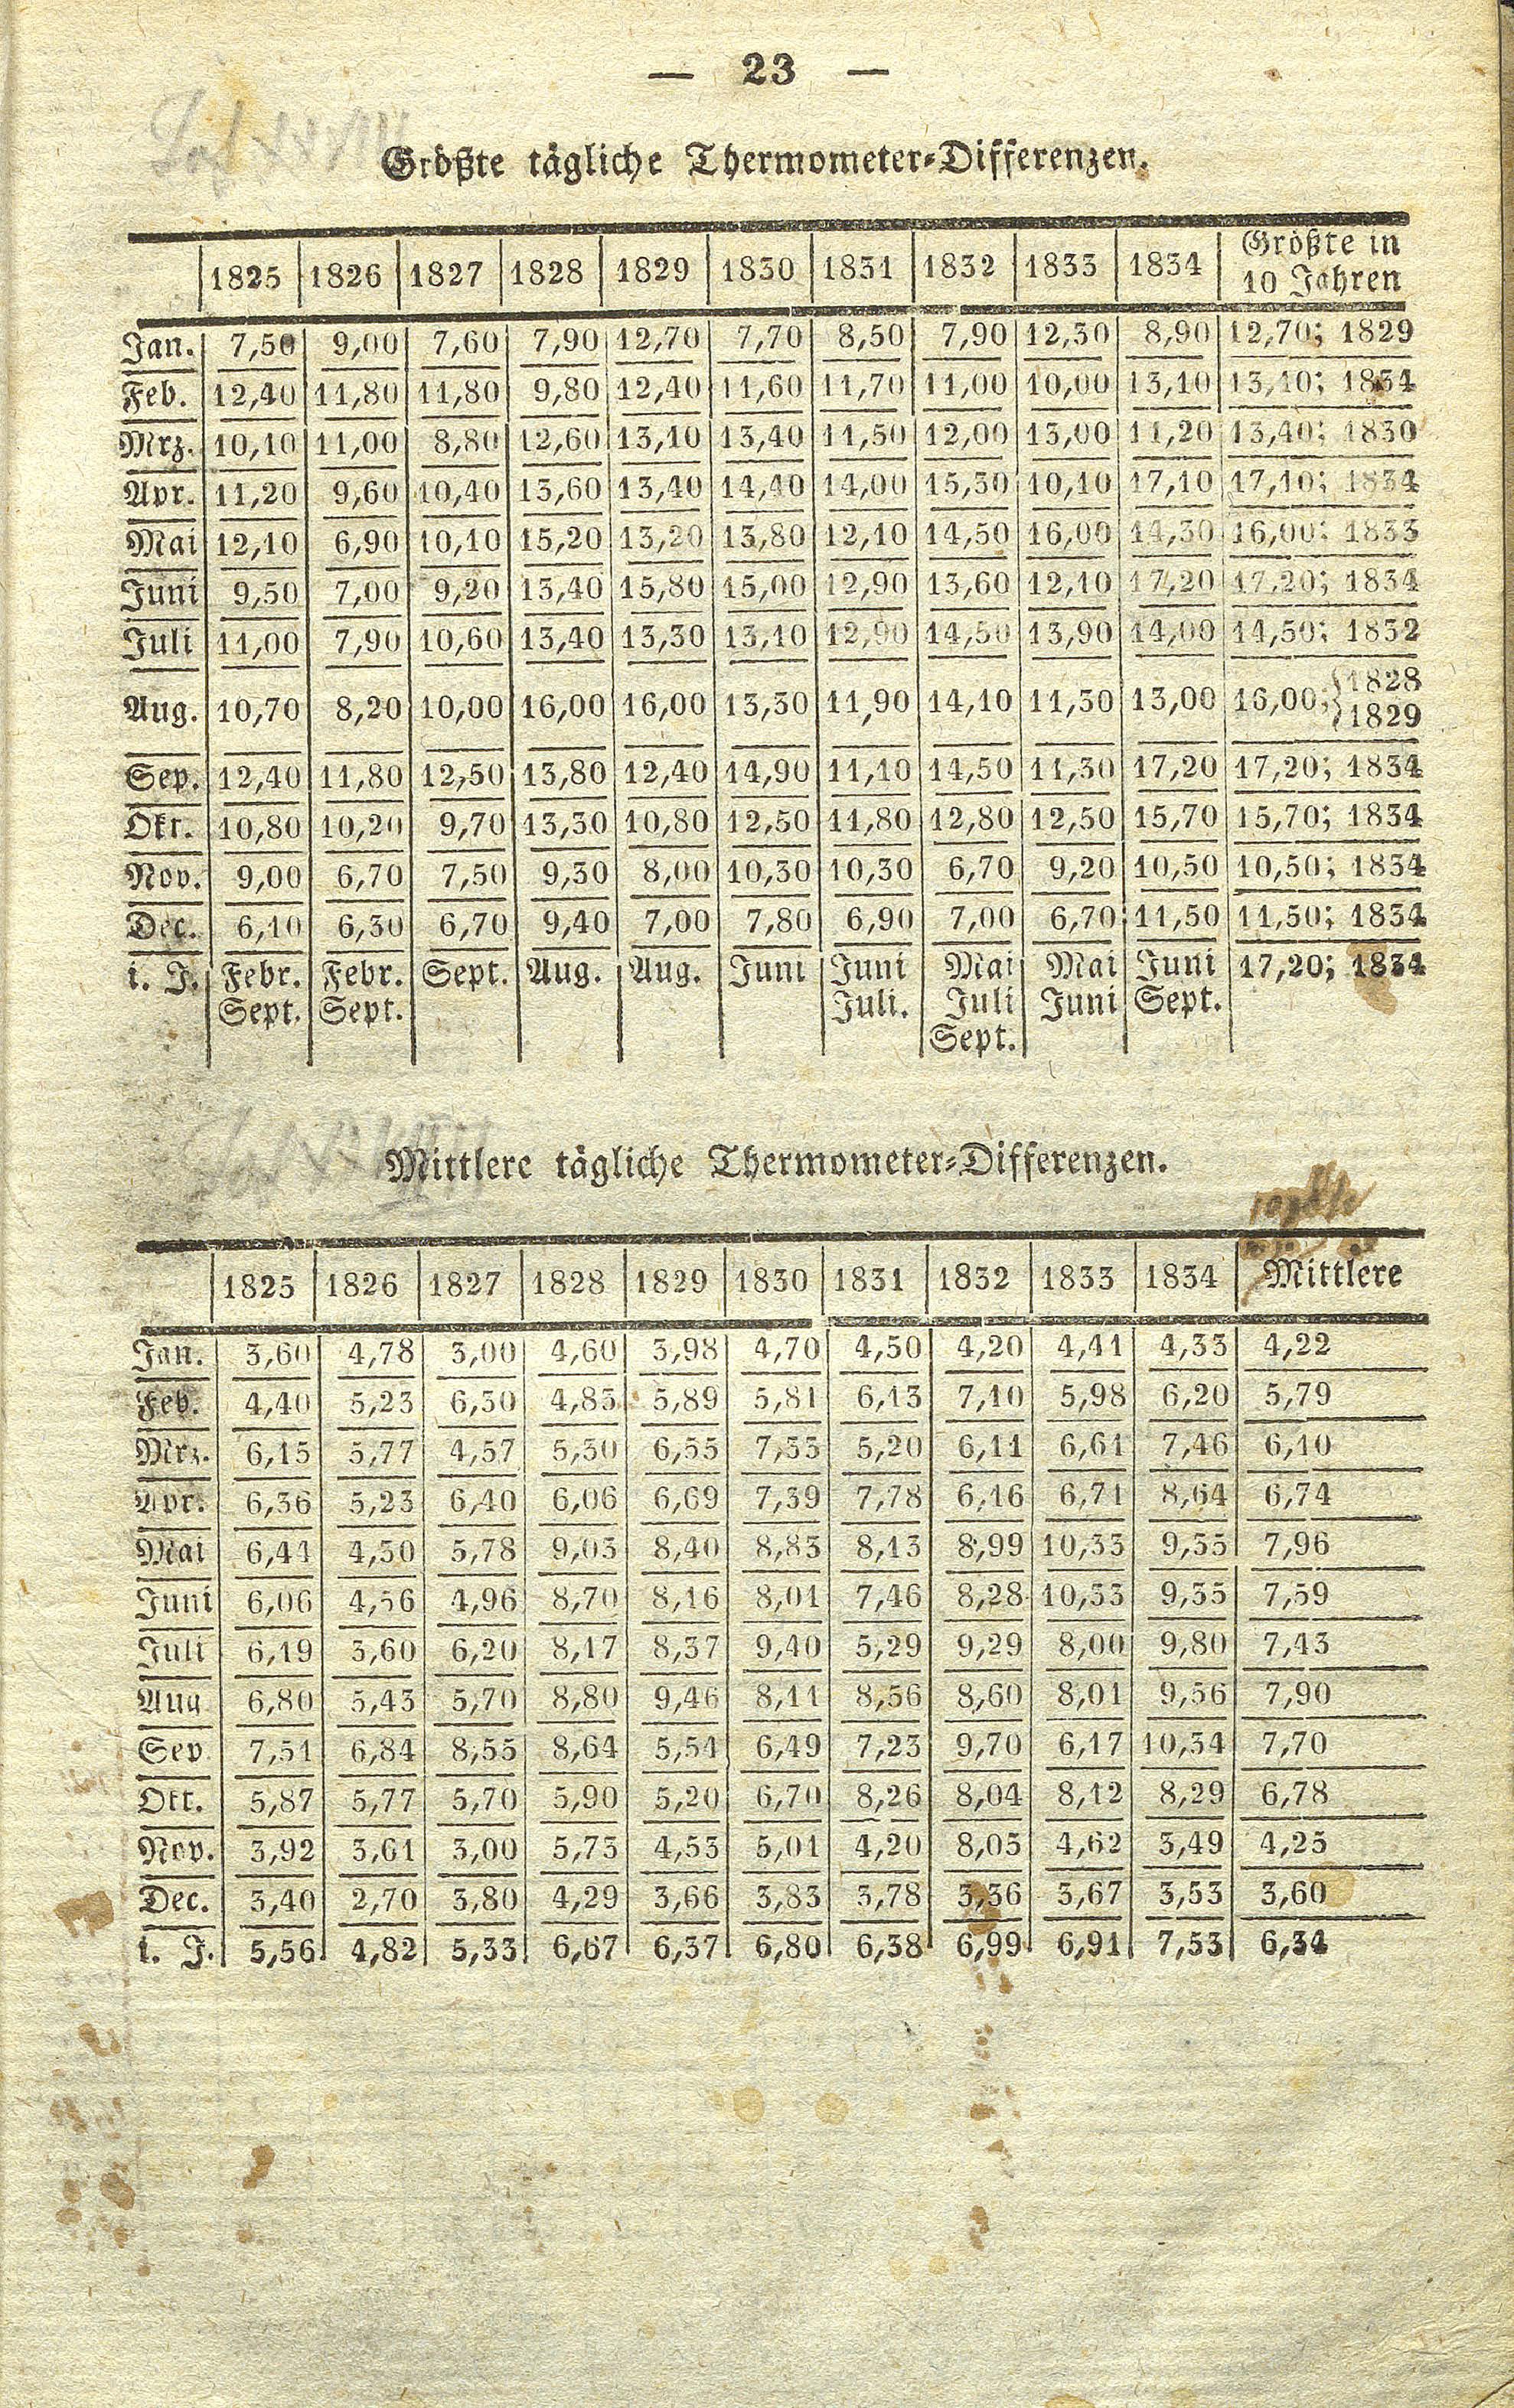 — 23 —
Größte tägliche Thermometer-Differenzen.
1825 1826 1827 1828 1829 1830 1831 1832 1833 1834 Größte in 10 Jahren
Jan. 7,50 9,00 7,60 7,90 12,70 7,70 8,50 7,90 12,30 8,90 12,70; 1829
Feb. 12,40 11,80 11,80 9,80 12,40 11,60 11,70 11,00 10,00 13,10 13,10; 1834
Mrz. 10,10 11,00 8,80 12,60 13,10 13,40 11,50 12,00 13,00 11,20 13,40; 1830
Apr. 11,20 9,60 10,40 13,60 13,40 14,40 14,00 15,30 10,10 17,10 17,10; 1834
Mai 12,10 6,90 10,10 15,20 13,20 13,80 12,10 14,50 16,00 14,30 16,00; 1833
Juni 9,50 7,00 9,20 13,40 15,80 15,00 12,90 13,60 12,10 17,20 17,20; 1834
Juli 11,00 7,90 10,60 13,40 13,30 13,10 12,90 14,50 13,90 14,00 14,50; 1832
Aug. 10,70 8,20 10,00 16,00 16,00 13,30 11,90 14,10 11,30 13,00 16,00; {1828 {1829
Sep. 12,40 11,80 12,50 13,80 12,40 14,90 11,10 14,50 11,30 17,20 17,20; 1834
Okt. 10,80 10,20 9,70 13,30 10,80 12,50 11,80 12,80 12,50 15,70 15,70; 1834
Nov. 9,00 6,70 7,50 9,30 8,00 10,30 10,30 6,70 9,20 10,50 10,50; 1834
Dec. 6,10 6,30 6,70 9,40 7,00 7,80 6,90 7,00 6,70 11,50 11,50; 1834
i. J. Febr. Febr. Sept. Aug. Aug. Juni Juni Mai Mai Juni 17,20; 1834
Sept. Sept. Juli. Juli Juni Sept.
Sept.
Mittlere tägliche Thermometer-Differenzen.
1825 1826 1827 1828 1829 1830 1831 1832 1833 1834 Mittlere
Jan. 3,60 4,78 3,00 4,60 3,98 4,70 4,50 4,20 4,41 4,33 4,22
Feb. 4,40 5,23 6,30 4,83 5,89 5,81 6,13 7,10 5,98 6,20 5,79
Mrz. 6,15 5,77 4,57 5,30 6,55 7,33 5,20 6,11 6,61 7,46 6,10
Apr. 6,36 5,23 6,40 6,06 6,69 7,39 7,78 6,16 6,71 8,64 6,74
Mai 6,44 4,50 5,78 9,03 8,40 8,83 8,13 8,99 10,33 9,55 7,96
Juni 6,06 4,56 4,96 8,70 8,16 8,01 7,46 8,28 10,33 9,35 7,59
Juli 6,19 3,60 6,20 8,17 8,37 9,40 5,29 9,29 8,00 9,80 7,43
Aug 6,80 5,43 5,70 8,80 9,46 8,11 8,56 8,60 8,01 9,56 7,90
Sep 7,51 6,84 8,55 8,64 5,54 6,49 7,23 9,70 6,17 10,34 7,70
Okt. 5,87 5,77 5,70 5,90 5,20 6,70 8,26 8,04 8,12 8,29 6,78
Nov. 3,92 3,61 3,00 5,73 4,53 5,01 4,20 8,05 4,62 3,49 4,25
Dec. 3,40 2,70 3,80 4,29 3,66 3,83 3,78 3,36 3,67 3,53 3,60
i. J. 5,56 4,82 5,33 6,67 6,37 6,80 6,38 6,99 6,91 7,53 6,34